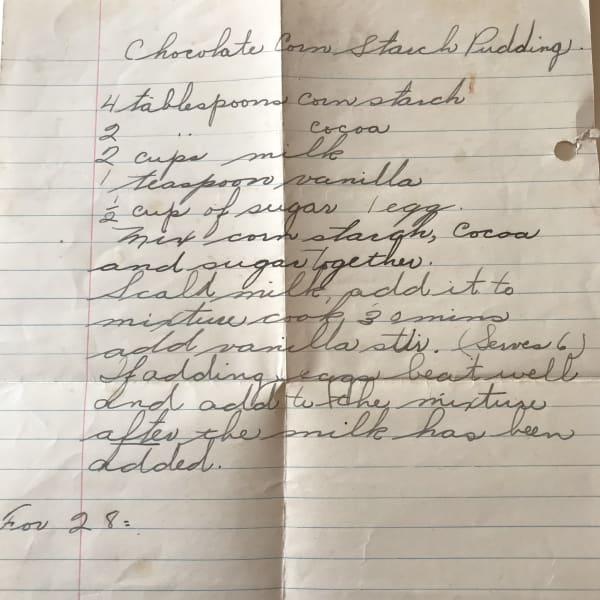 Chocolate Corn Starch Pudding.
4 tablespoons corn starch
2 " cocoa
2 cups milk
1 teaspoon vanilla
1/2 cup of sugar 1 egg.
Mix corn starch, cocoa
and sugar together.
Scald milk, add it to
mixture cook 30 mins
add vanilla stir. (Serves 6)
If adding eggs beat well
and add to the mixture
after the milk has been
added.
For 28: